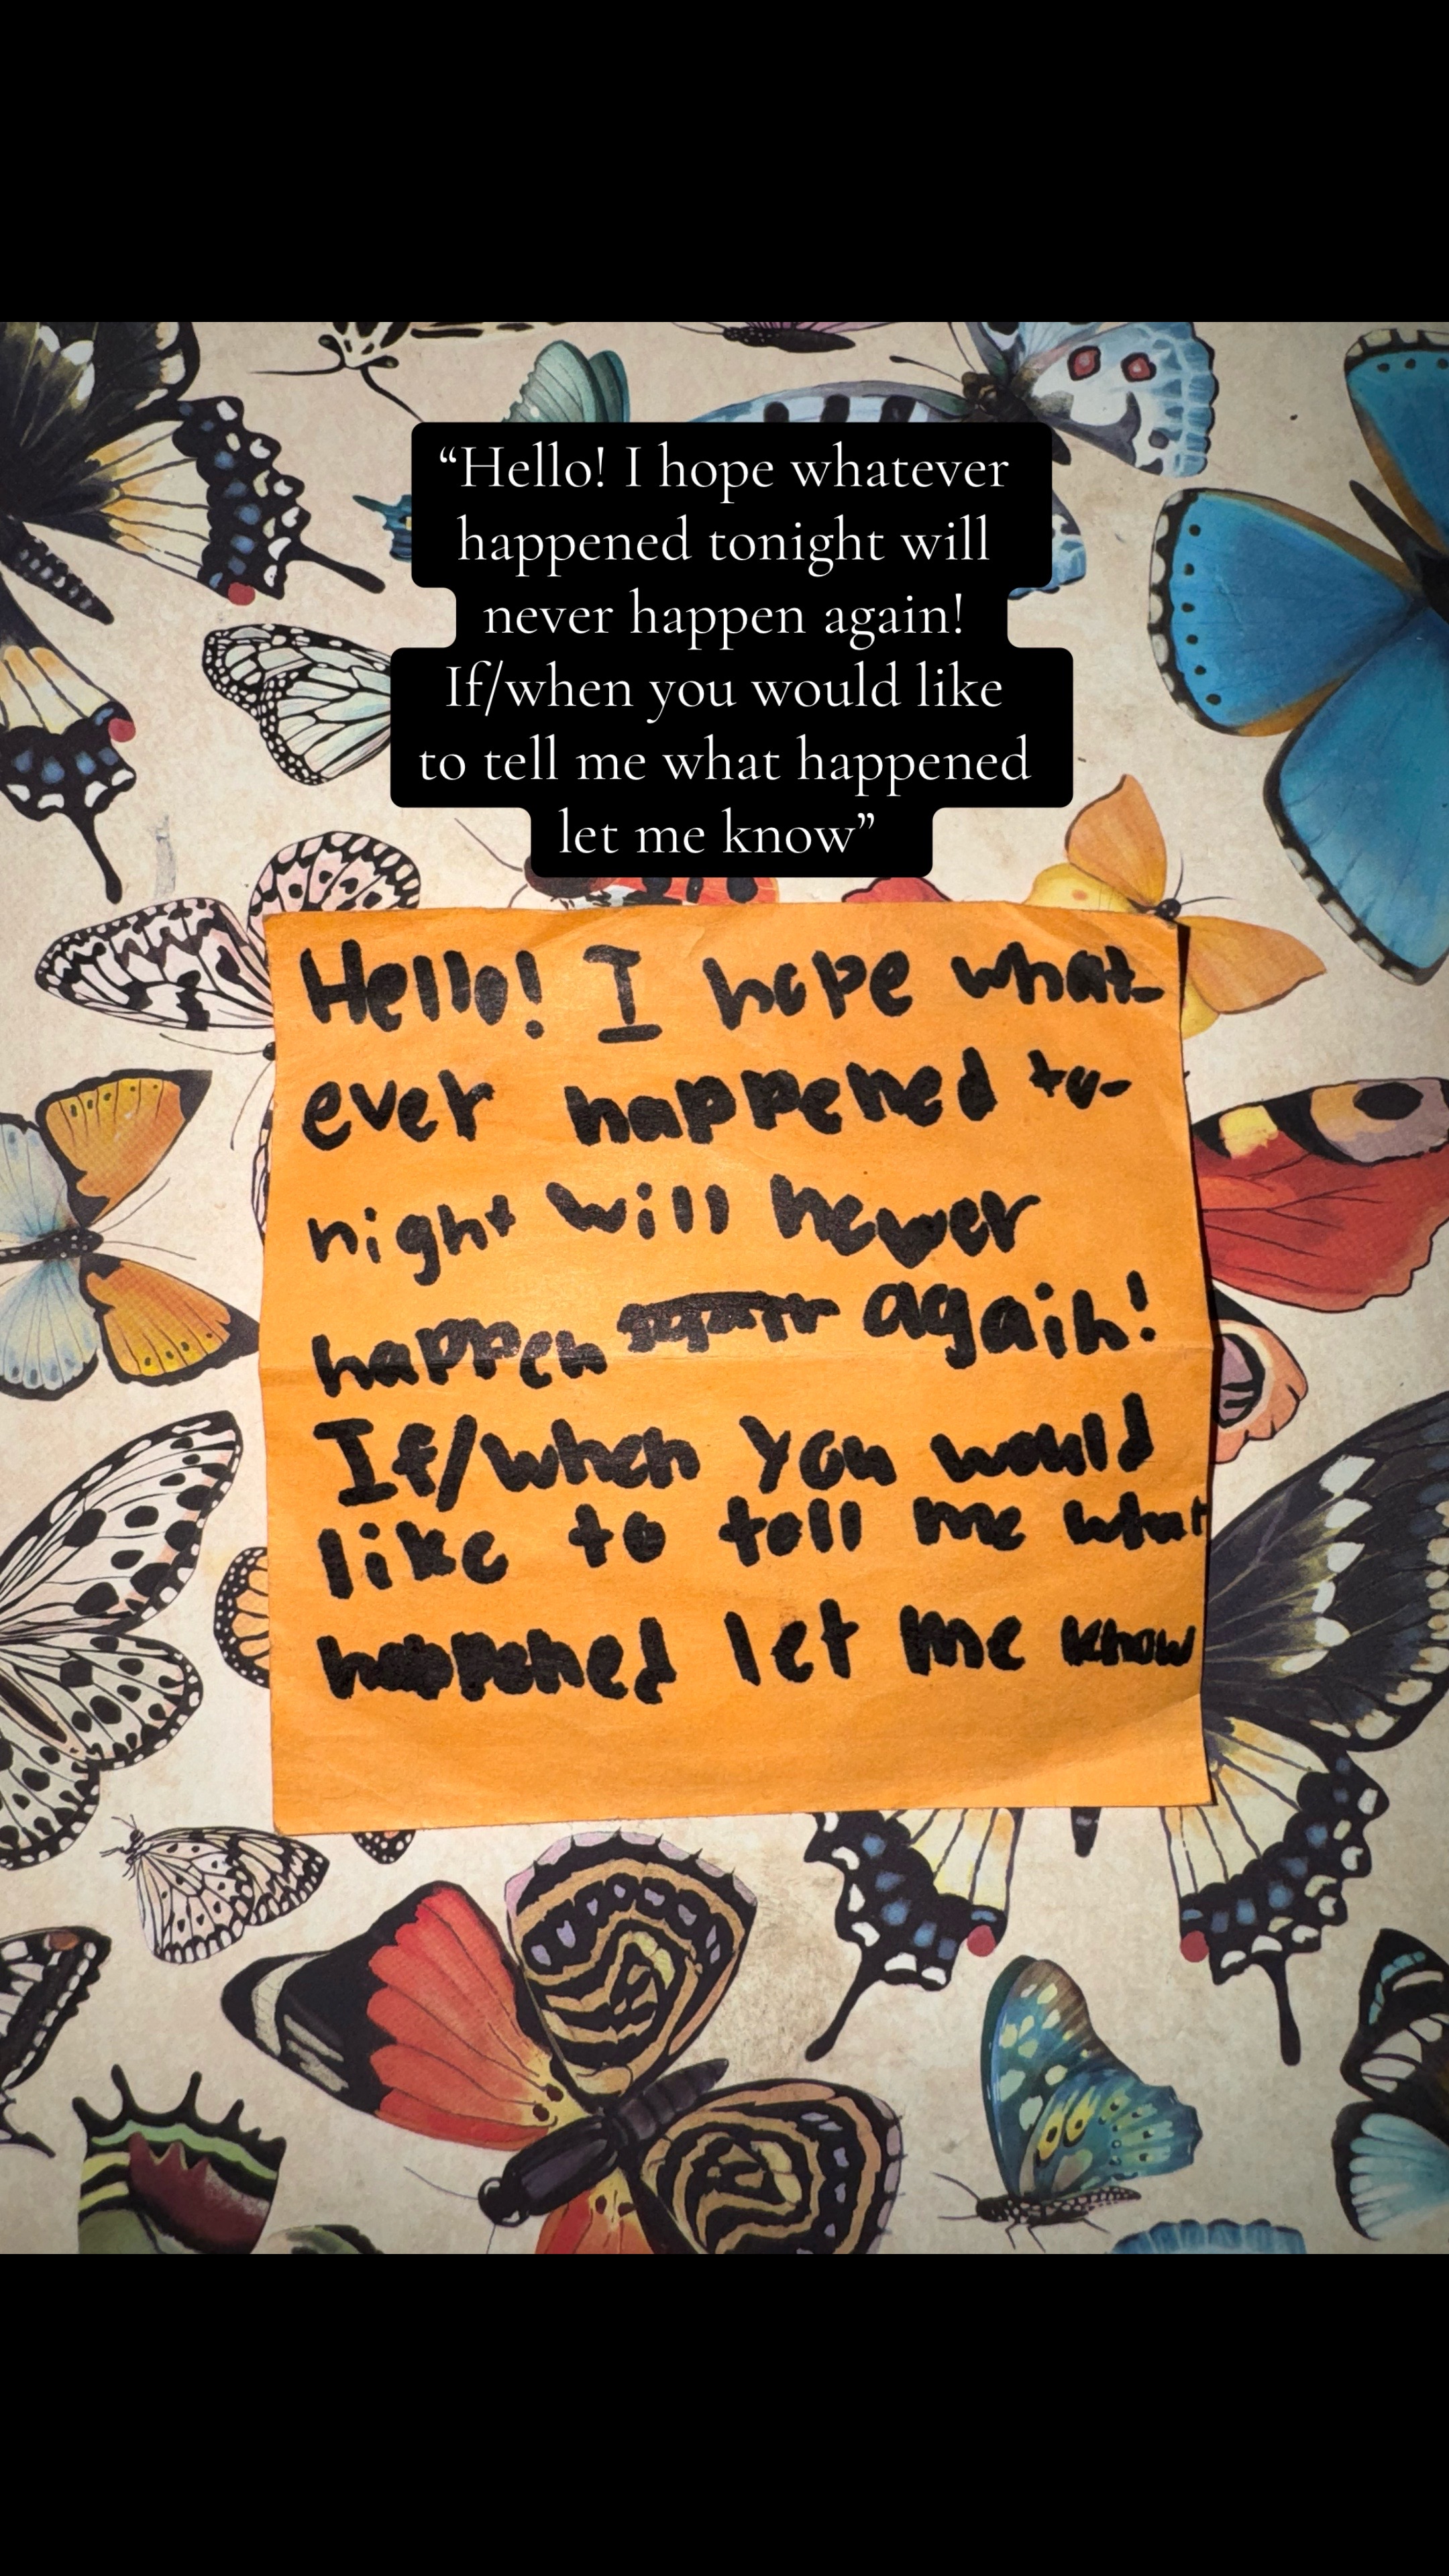 “Hello! I hope whatever
happened tonight will
never happen again!
If/when you would like
to tell me what happened
let me know”
Hello! I hope what-
ever happened to-
night will never
happen again!
If/when you would
like to tell me what
happened let me know